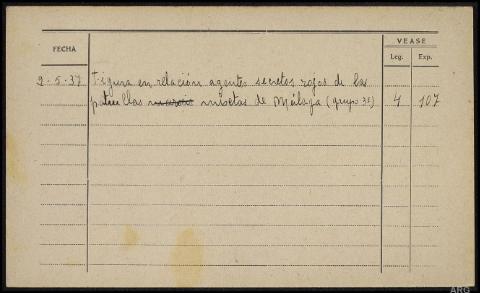 VEASE
FECHA
Leg. Exp.
9-5-37 Figura en relación agentes secretos rojos de las
patrullas mixtas de Málaga (grupo 35) 4 107
ARG